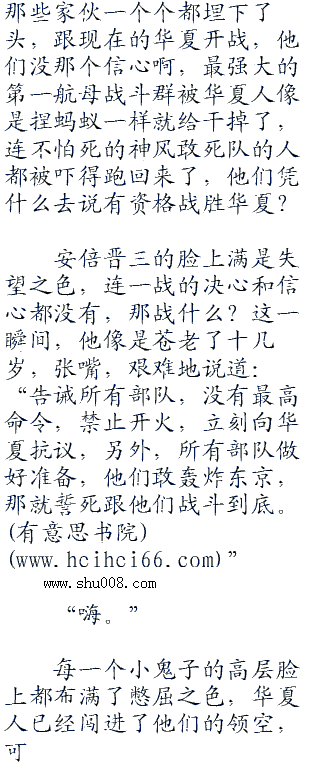 那些家伙一个个都埋下了
头，跟现在的华夏开战，他
们没那个信心啊，最强大的
第一航母战斗群被华夏人像
是捏蚂蚁一样就给干掉了，
连不怕死的神风敢死队的人
都被吓得跑回来了，他们凭
什么去说有资格战胜华夏？
安倍晋三的脸上满是失
望之色，连一战的决心和信
心都没有，那战什么？这一
瞬间，他像是苍老了十几
岁，张嘴，艰难地说道：
“告诫所有部队，没有最高
命令，禁止开火，立刻向华
夏抗议，另外，所有部队做
好准备，他们敢轰炸东京，
那就誓死跟他们战斗到底。
(有意思书院)
(www.hcihci66.com)”
www.shu008.com
“嗨。”
每一个小鬼子的高层脸
上都布满了憋屈之色，华夏
人已经闯进了他们的领空，
可